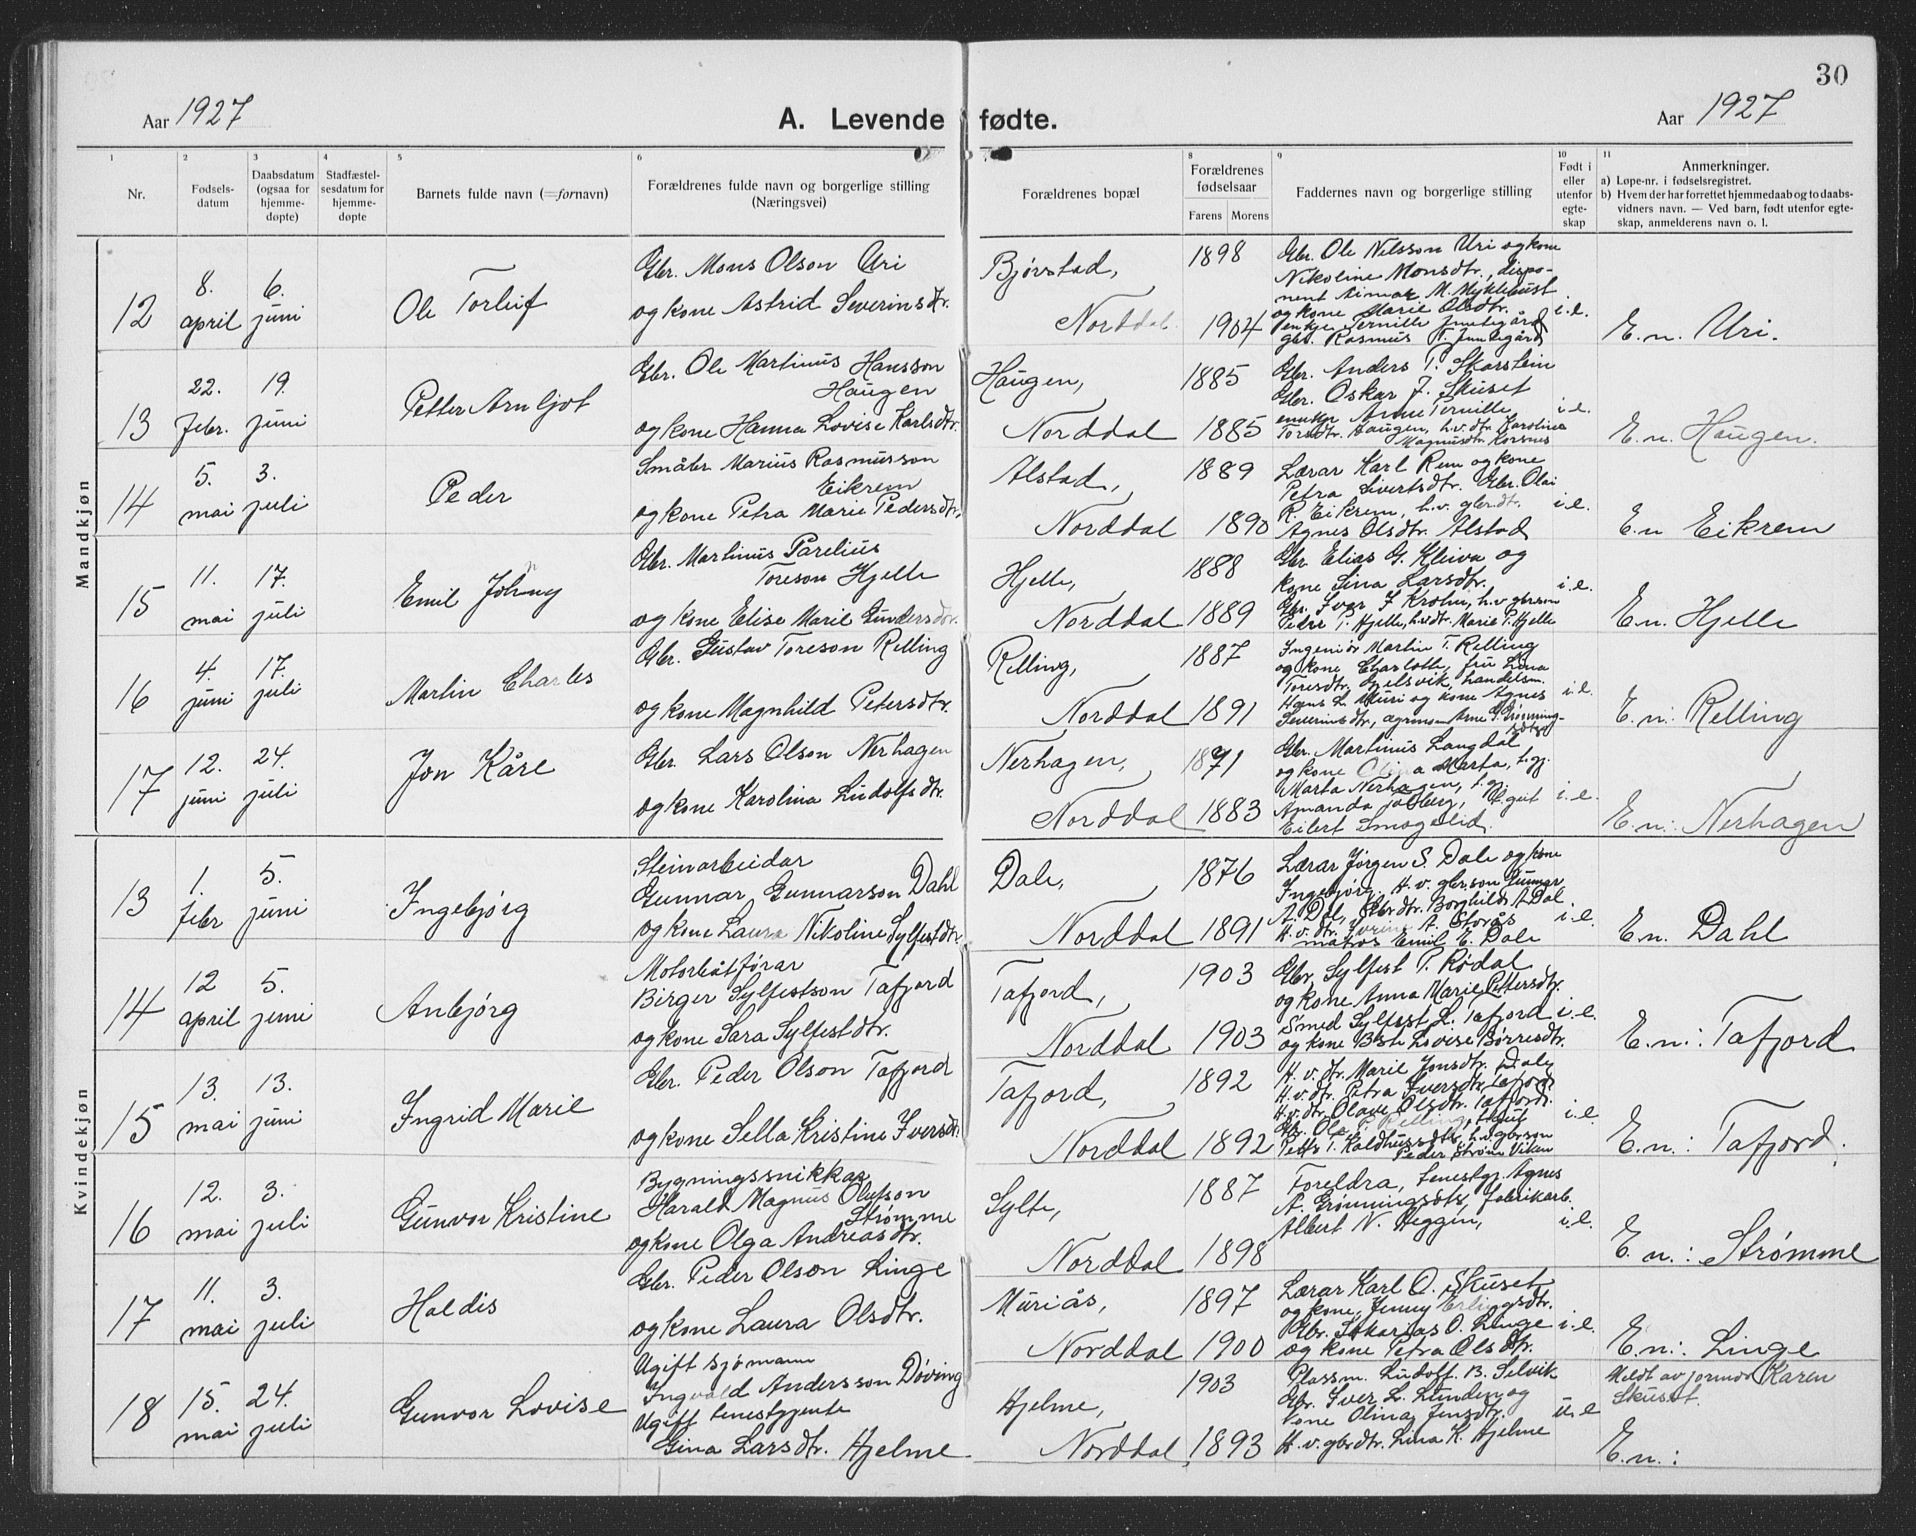 30
Aar 1927
A. Levende fødte.
Aar 1927
1 2 3 4 5 6 8 9 10 11
Nr.
Fødsels-
datum
Daabsdatum
(ogsaa for
hjemme-
døpte)
Stadfæstel-
sesdatum for
hjemme-
døpte
Barnets fulde navn (=fornavn)
Forældrenes fulde navn og borgerlige stilling
(Næringsvei)
Forældrenes bopæl
Forældrenes
fødselsaar
Farens Morens
Faddernes navn og borgerlige stilling
Født i
eller
utenfor
egte-
skap
Anmerkninger.
a) Løpe-nr. i fødselsregistret.
b) Hvem der har forrettet hjemmedaab og to daabs-
vidners navn. — Ved barn, født utenfor egte-
skap, anmelderens navn o. l.
Mandkjøn
12
8.
april
6.
juni
Ole Torleif
Gbr. Mons Olson Uri
og kone Astrid Severinsdtr.
Bjørstad,
Norddal
1898
1904
Gbr. Ole Nilsson Uri og kone
Nikoline Monsdtr., dispo-
nent M. Myklebust
og kone Marie Olsdtr.
Pernille
gbr. Rasmus
i.e.
E.n. Uri.
13
22.
febr.
19.
juni
Petter Arnljot
Gbr. Ole Martinus Hansson
Haugen
og kone Hanna Lovise Karlsdtr.
Haugen,
Norddal
1885
1885
Gbr. Anders T. Skarstein
Gbr. Oskar J. Skuset
Anne Pernille
Haugen, h.v.dtr. Karoline
Magnusdtr. Korsnes
i.e.
E.n. Haugen.
14
5.
mai
3.
juli
Peder
Småbr. Marius Rasmusson
Eikrem
og kone Petra Marie Pedersdtr.
Alstad,
Norddal
1889
1890
Lærar Karl Rem og kone
Petra Sivertsdtr. Gbr. Olai
R. Eikrem, h.v. gbr.dtr.
Agnes Olsdtr. Alstad
i.e.
E.n Eikrem
15
11.
mai
17.
juli
Emil Johny
Gbr. Martinus Parelius
Toreson Hjelle
og kone Elise Marie Gundersdtr.
Hjelle,
Norddal
1888
1889
Gbr. Elias G. Kleiva og
kone Lina Larsdtr.
Gbr. Iver J Krohn, h.v gbrson
Peder T. Hjelle, h.v.dtr. Marie P. Hjelle
i.e.
E.n. Hjelle
16
4.
juni
17.
juli
Martin Charles
Gbr. Gustav Toreson Relling
og kone Magnhild Petersdtr.
Relling,
Norddal
1887
1891
Ingeniør Martin T. Relling
og kone Charlotte, fru Lina
Toresdtr. Gjelsvik, handelsm.
Hans L. Muri og kone Agnes
Severinsdtr.,
i.e.
E.n. Relling
17
12.
juni
24.
juli
Jon Kåre
Gbr. Lars Olson Nerhagen
og kone Karolina Ludolfsdtr.
Nerhagen,
Norddal
1871
1883
Gbr. Martinus Langdal
og kone Olina Marta, t.gj.
Marta Nerhagen, t.gj.
Amanda Solberg, Ugift
Eilert Smogelid.
i.e.
E.n. Nerhagen
Kvindekjøn
13
1.
febr
5.
juni
Ingebjørg
Steinarbeidar
Gunnar Gunnarson Dahl
og kone Laura Nikoline Sylfestdtr
Dale,
Norddal
1876
1891
Lærar Jørgen S. Dale og kone
Ingebjørg. H.v. gbr.son Gunnar
A. Dal, Gbrdtr. Borghild A Dal.
H.v.dtr. A. Storås
matros Emil E. Dale
i.e
E.n. Dahl
14
12
april
5.
juni
Anbjørg
Motorbåtførar
Birger Sylfestson Tafjord
og kone Sara Sylfestdtr.
Tafjord,
Norddal
1903
1903
Gbr. Sylfest P. Rødal
og kone Anna Marie Pettersdtr.
Smed Sylfest L. Tafjord
og kone Lovise Børresdtr.
i.e.
E.n: Tafjord
15
13.
mai
13.
juni
Ingrid Marie
Gbr. Peder Olson Tafjord
og kone Sella Kristine Iversdtr.
Tafjord,
Norddal
1892
1892
H.v.dtr. Marie Jonsdtr. Dale
H.v.dtr. Petra Iversdtr. Tafjord
H.v.dtr Olave Olsdtr. Tafjord.
Gbr. Ola P. Relling, Ugift
T. Kaldhussdtr, h.v.gbrson
Peder Strøm Viken
i.e.
E.n.: Tafjord.
16
12.
mai
3.
juli
Gunvor Kristine
Bygningssnikkar
Harald Magnus Olufson
Strømme
og kone Olga Andreasdtr.
Sylte,
Norddal
1887
1898
Foreldra, tenestgj. Agnes
A. Grønningsdtr, fabrikarb.
Albert N. Heggen,
i.e.
E.n.: Strømme
17
11.
mai
3.
juli
Haldis
Gbr. Peder Olson Linge
og kone Laura Olsdtr.
Muriås,
Norddal
1897
1900
Lærar Karl O. Skuset
og kone Jenny Erlingsdtr.
Gbr. Sakarias O. Linge
og kone Petra Olsdtr.
i.e.
E.n: Linge
18
15.
mai
24.
juli
Gunvor Lovise
Ugift sjømann
Ingvald Andersson Døving
Ugift tenestgjente
Gina Larsdtr. Hjelme
Hjelme,
Norddal,
1903
1893
Plassm. Ludolf B. Selvik
Gbr. Iver L. Linden og
kone Olina Jensdtr.
H.v.gbrdtr. Lina K. Hjelme
u.e
Meldt av jormor Karen
Skuset.
E.n.: